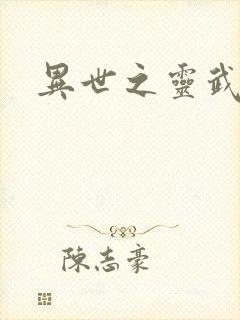 異世之靈武
陳志豪